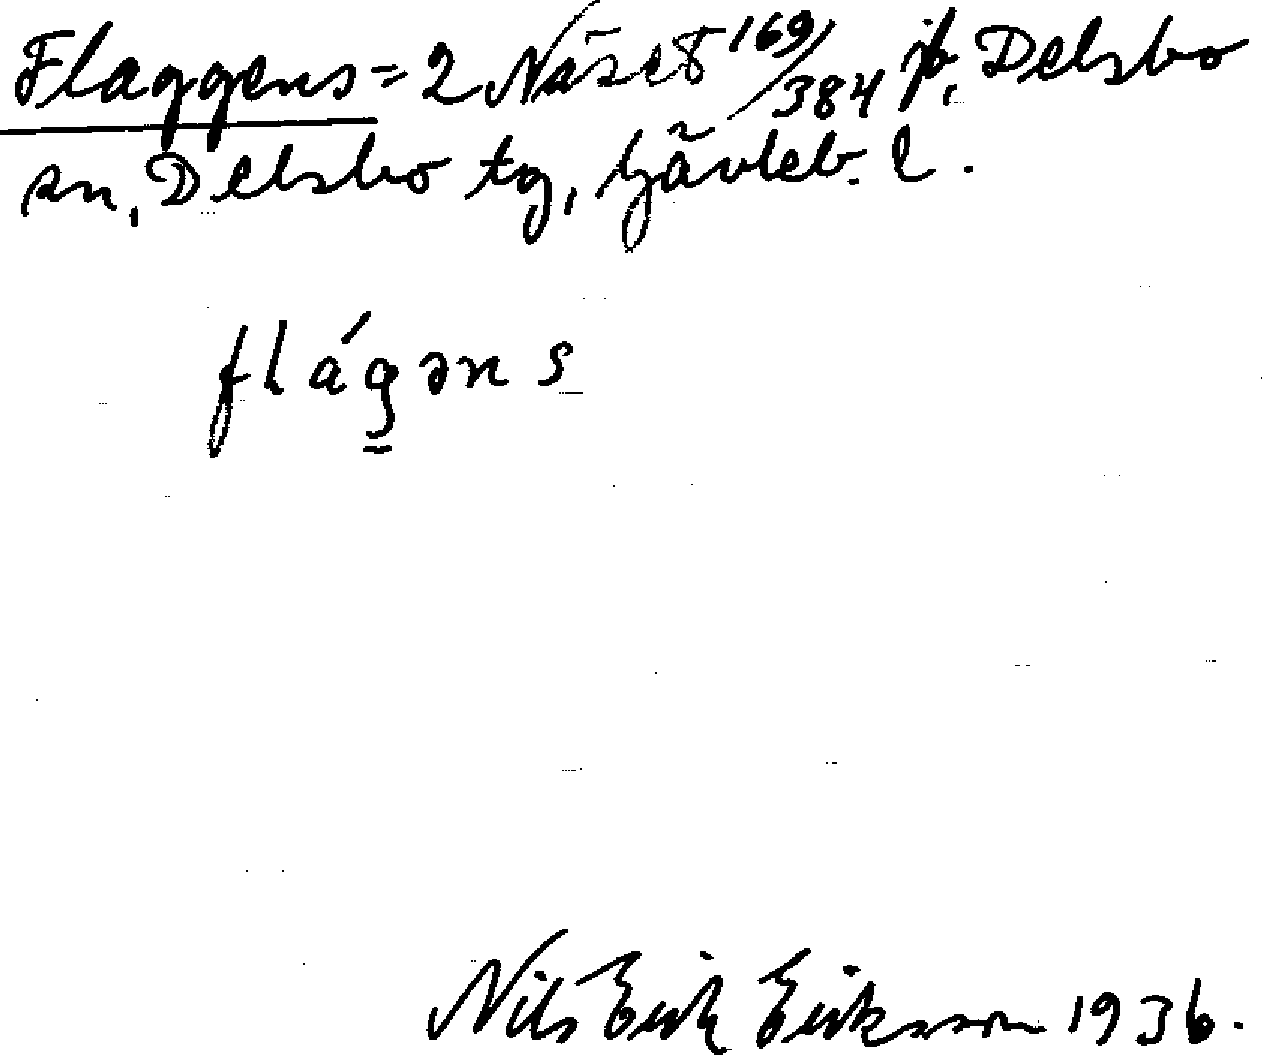 Flaggens = 2 Näset 169/384 jb, Delsbo
sn, Delsbo tg, Gävleb. l.
flágəns
Nils Erik Eriksson 1936.